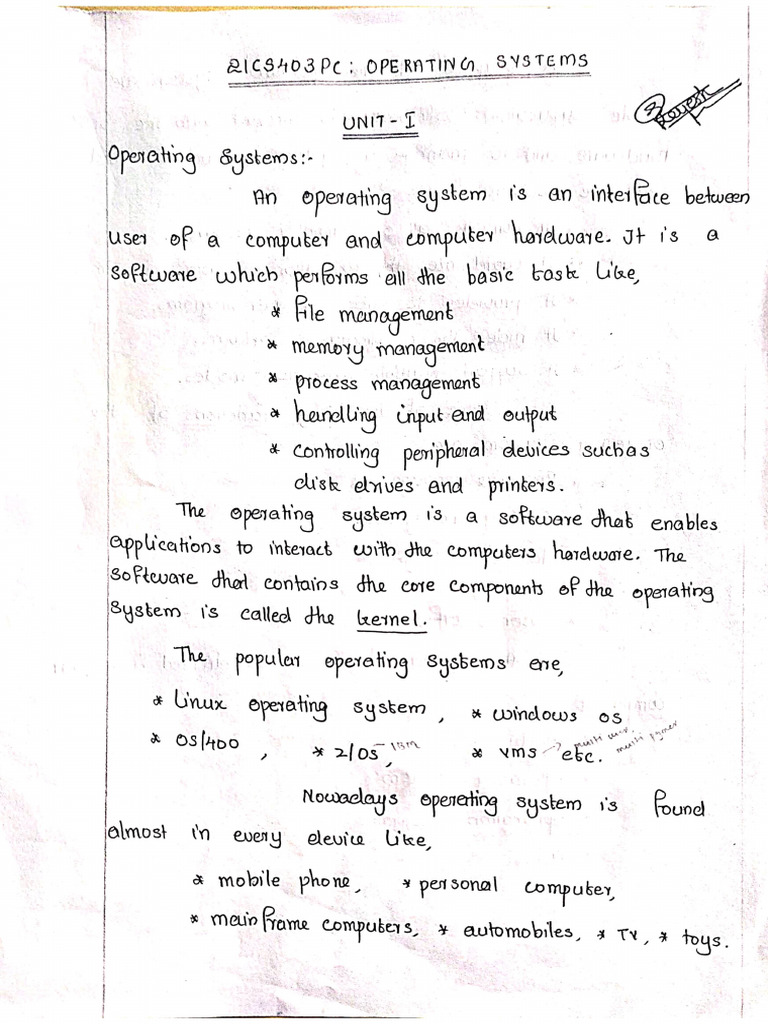 21CS403PC: OPERATING SYSTEMS
UNIT-I
Operating Systems:-
An operating system is an interface between
user of a computer and computer hardware. It is a
software which performs all the basic task like,
* File management
* memory management
* process management
* handling input and output
* controlling peripheral devices suchas
disk drives and printers.
The operating system is a software that enables
applications to interact with the computers hardware. The
software that contains the core components of the operating
system is called the kernel.
The popular operating systems are,
* Linux operating system, * windows os
* OS/400, * 2/OS - IBM, * vms → etc. multi user
* Nowadays operating system is found
almost in every device like,
* mobile phone, * personal computer,
* mainframe computers, * automobiles, * TV, * toys.